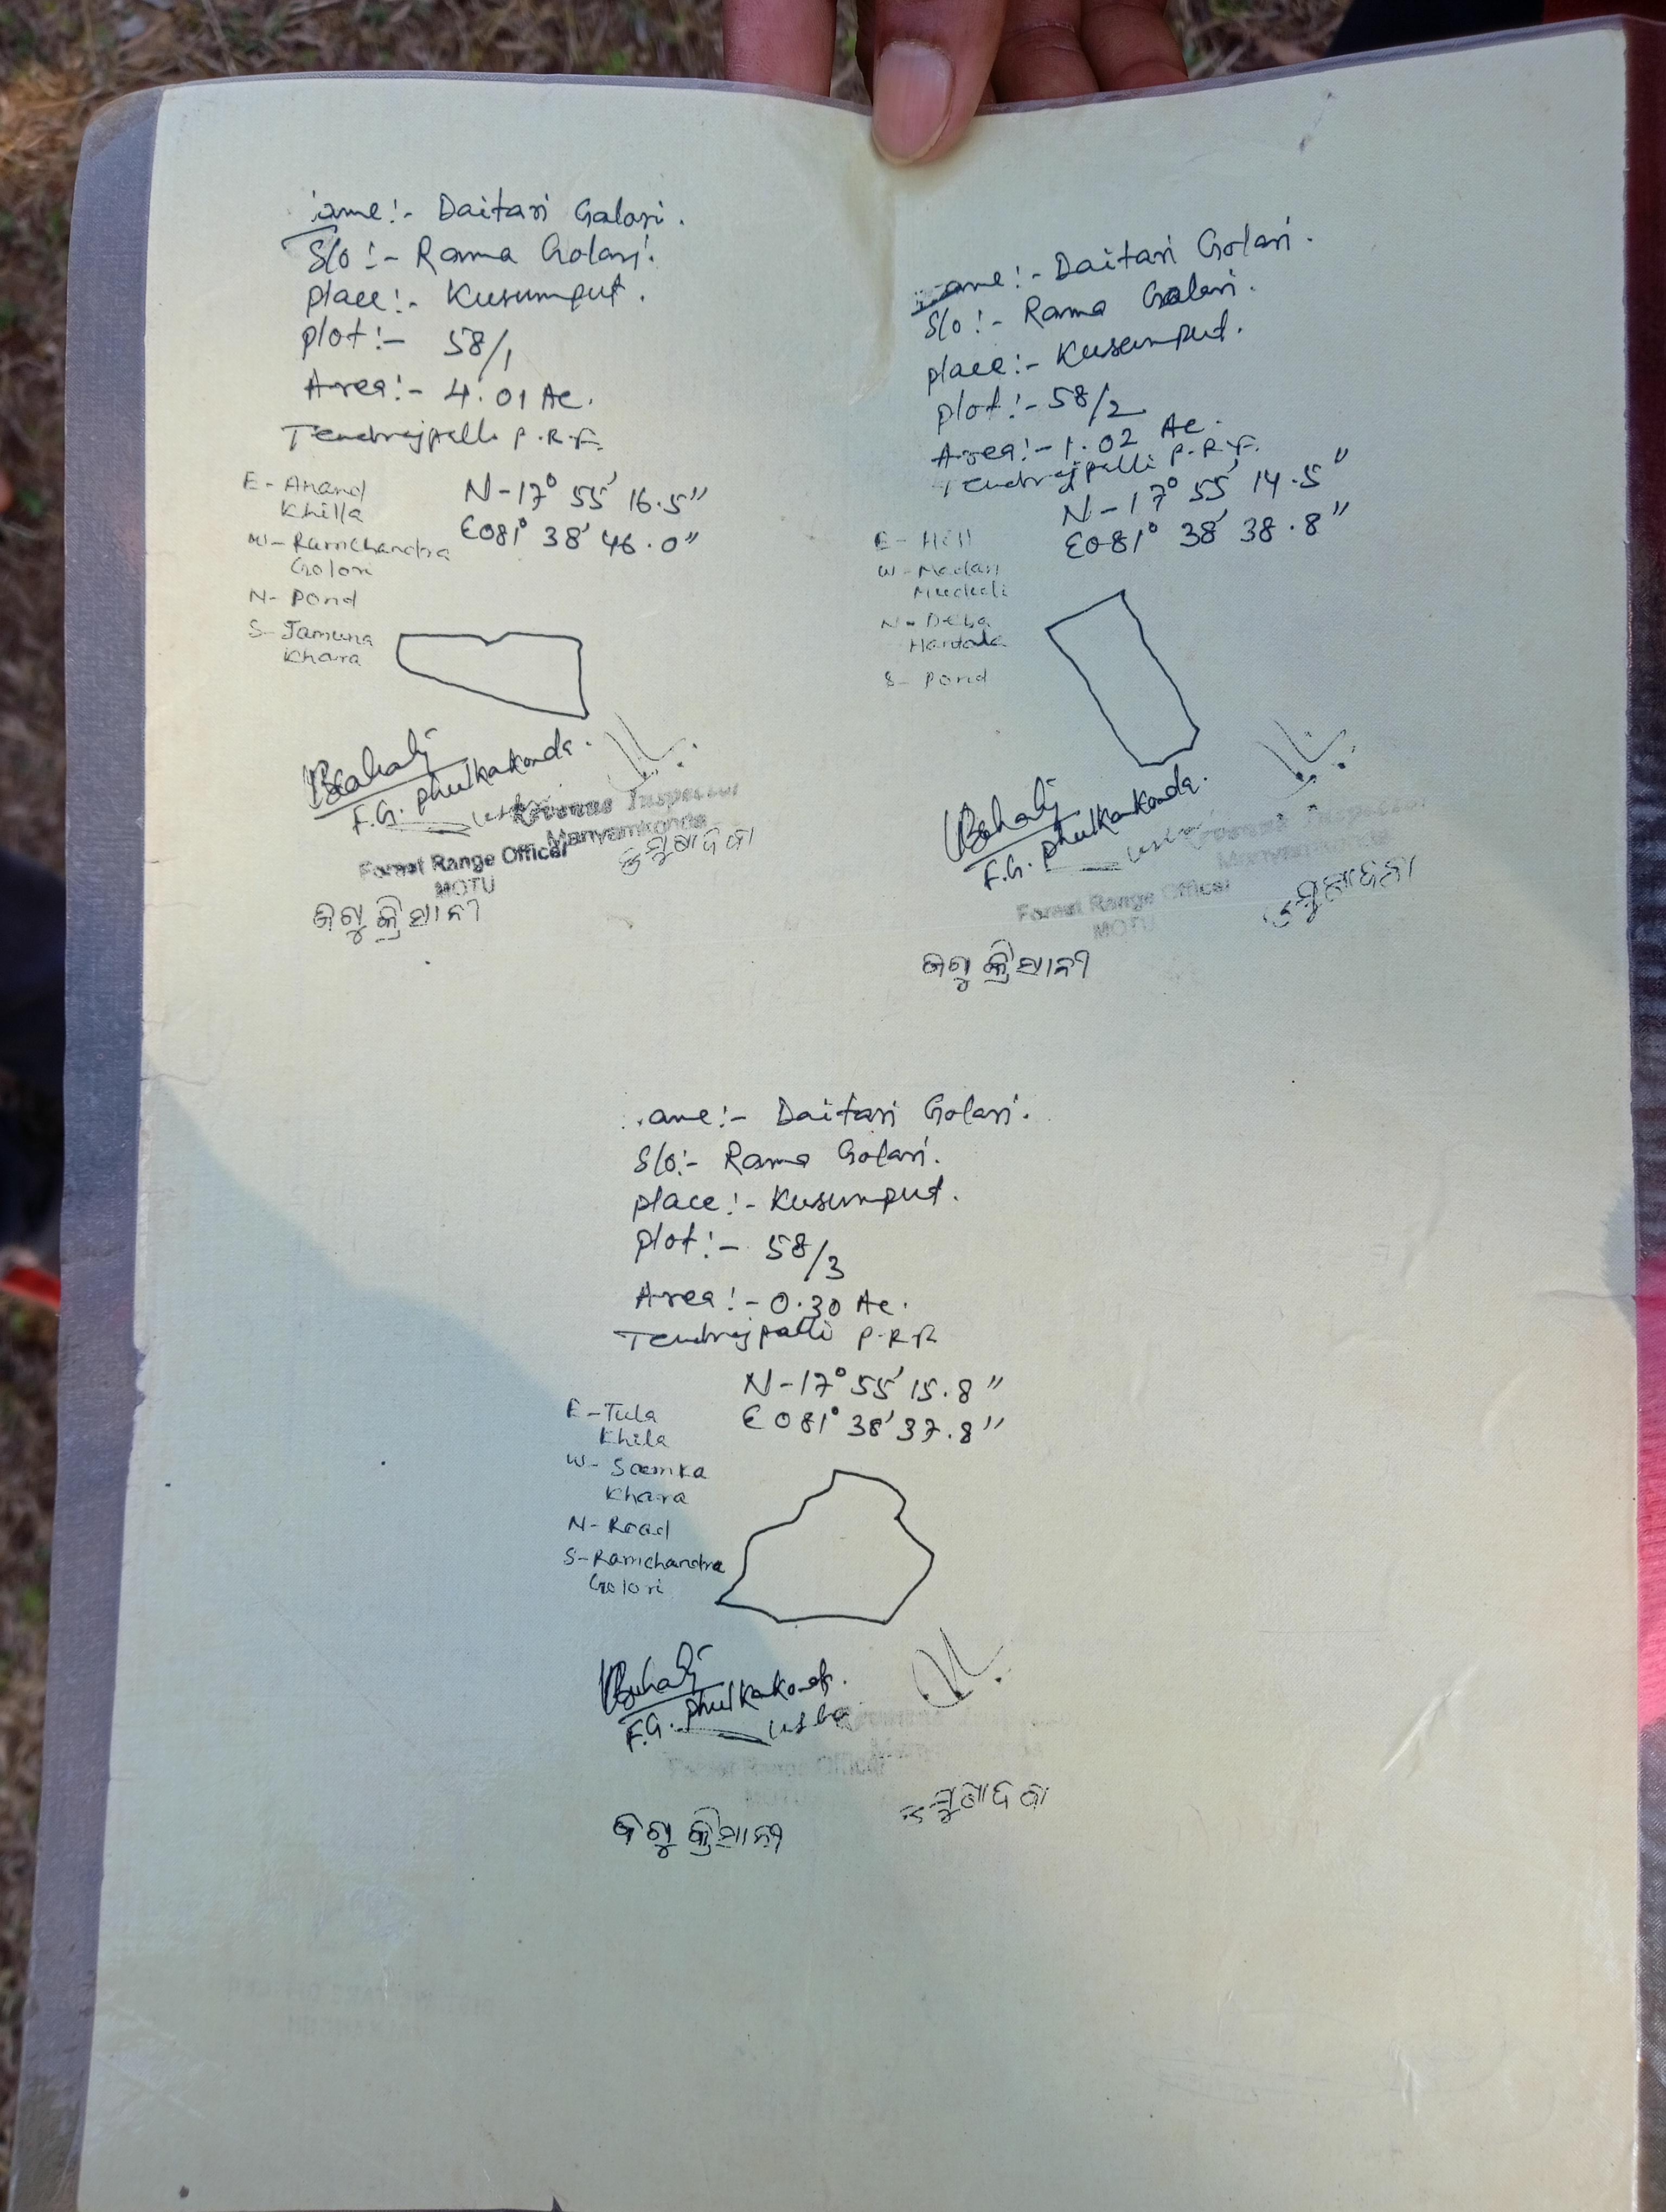 ame:- Daitari Golari.
S/o:- Rama Golari.
place:- Kusumput.
plot:- 58/1
Area:- 4.01 Ac.
Tendrajpalli P.R.F.
N-17° 55' 16.5"
E081° 38' 46.0"
E- Anand
Khilla
W- Ramchandra
Golori
N- Pond
S- Jamuna
Khara
F.G. Phulkakonda.
Revenue Inspector
Manyamkonda
Forest Range Officer
MOTU
ଜଗୁ କ୍ରିସାନୀ
ame:- Daitari Golari.
S/o:- Rama Golari.
place:- Kusumput.
plot:- 58/2
Area:- 1.02 Ac.
Tendrajpalli P.R.F.
N-17° 55' 14.5"
E081° 38' 38.8"
E- Hill
W- Madan
Muduli
N- Deba
Hantala
S- Pond
F.G. Phulkakonda.
Revenue Inspector
Manyamkonda
Forest Range Officer
MOTU
ଜଗୁ କ୍ରିସାନୀ
ame:- Daitari Golari.
S/o:- Rama Golari.
place:- Kusumput.
plot:- 58/3
Area:- 0.30 Ac.
Tendrajpalli P.R.F.
N-17° 55' 15.8"
E081° 38' 37.8"
E- Tula
Khila
W- Samka
Khara
N- Road
S- Ramchandra
Golori
F.G. Phulkakonda.
Forest Range Officer
MOTU
ଜଗୁ କ୍ରିସାନୀ